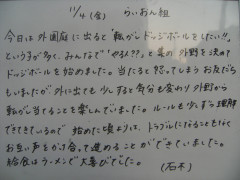 11/4(金) らいおん組
今日は外園庭に出ると「転がしドッジボールをしたい!!」
という子が多く、みんなで"やる人??"と 外野を決めて
ドッジボールを始めました。当たると怒ってしまうお友だち
もいましたが外に出ても少しすると気分も変わり外野から
転がし当てることを楽しんでいました。ルールも少しずつ理解
できてきているので 始めた頃よりは、トラブルになることもなく
お互い声をかけ合って進めることができていました。
給食はラーメンで大喜びでした。
(石本)